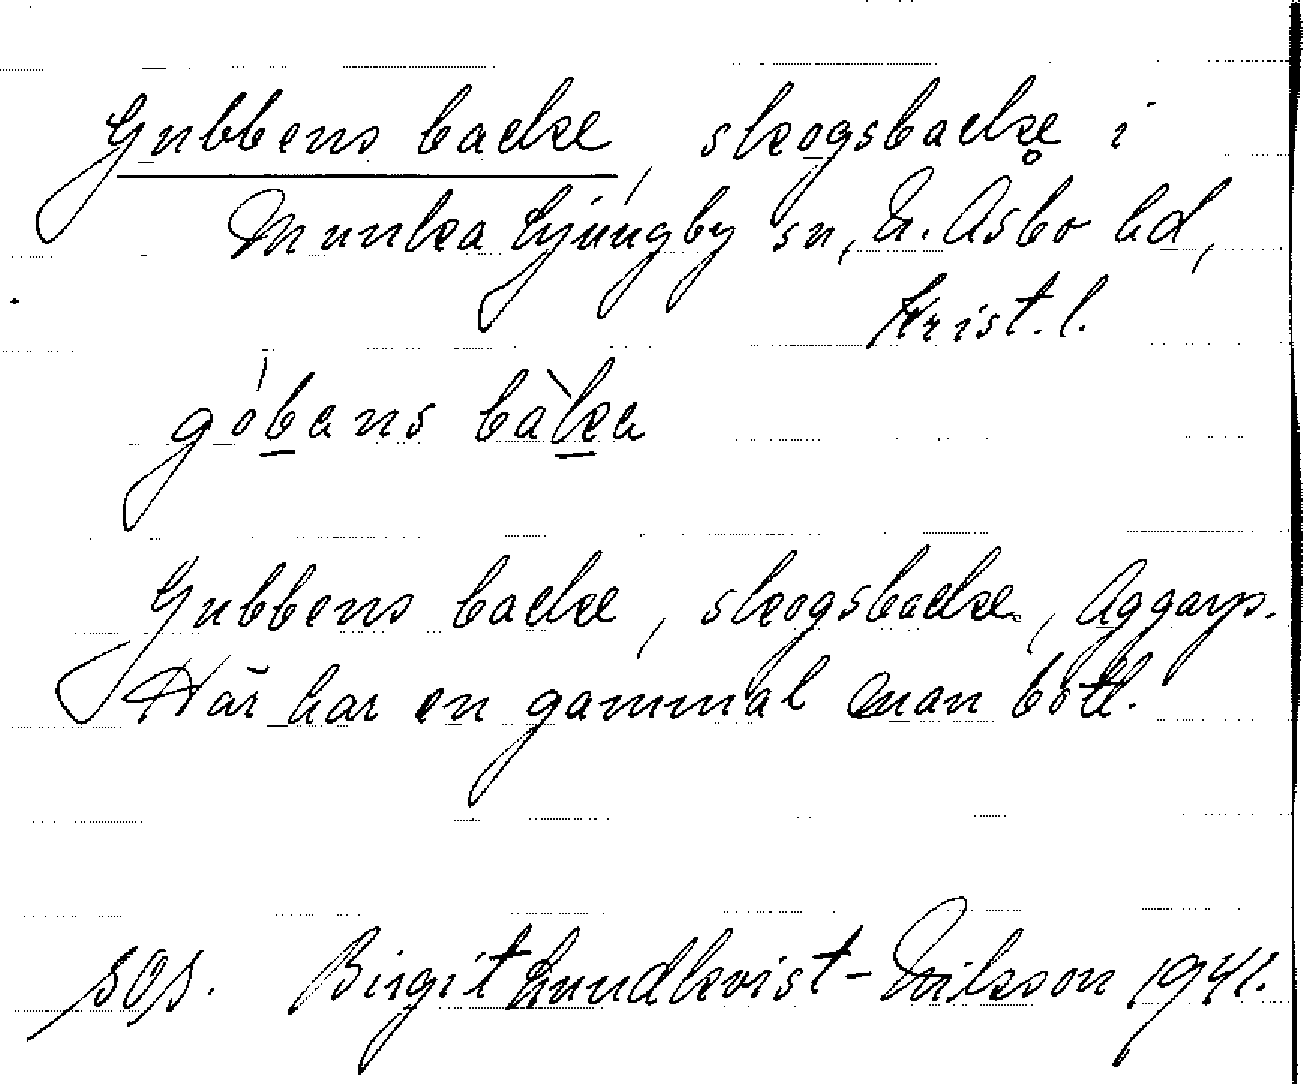 Gubbens backe, skogsbacke i
Munka Ljungby sn, N. Åsbo hd,
Krist. l.
góbans bàka
Gubbens backe, skogsbacke, Aggarp.
Här har en gammal man bott.
SOS. Birgit Lundkvist-Nilsson 1941.